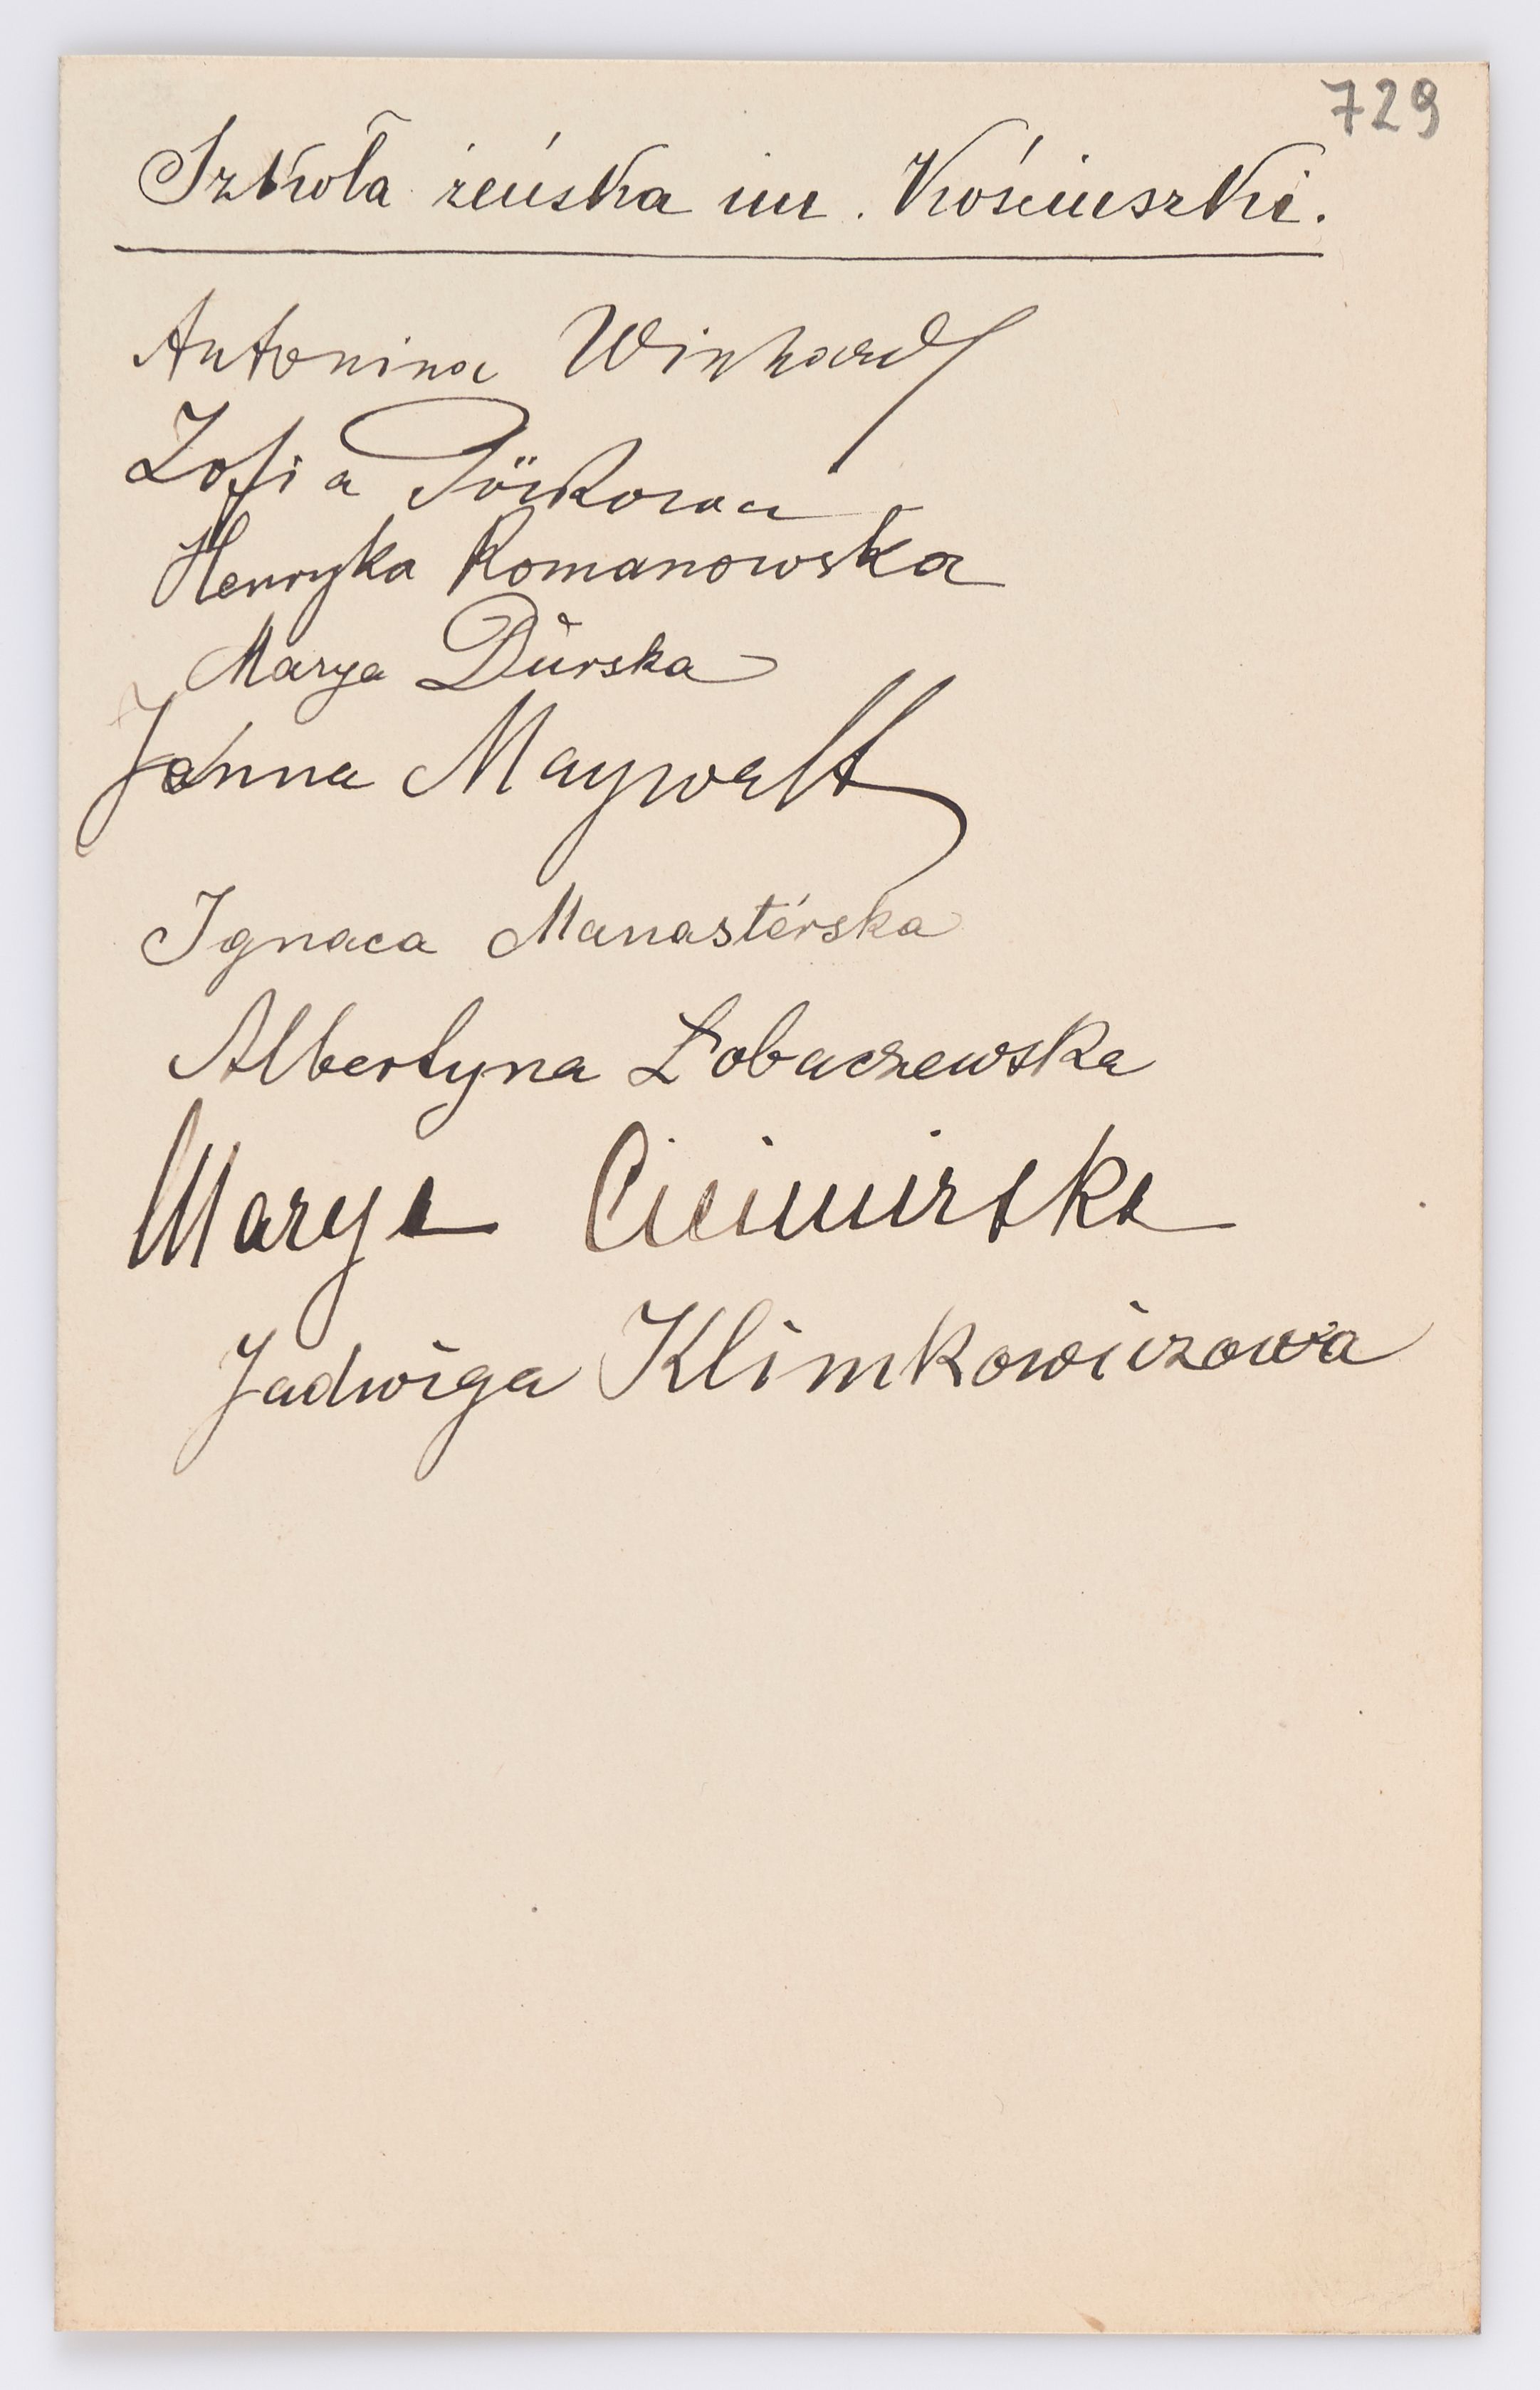 729
Szkoła żeńska im. Kościuszki.
Antonina Winhard
Zofia
Henryka Romanowska
Marya Dürska
Janna Maywalt
Ignaca Manasterska
Albertyna Łobaczewska
Marya Cieimirska
Jadwiga Klimkowiczowa